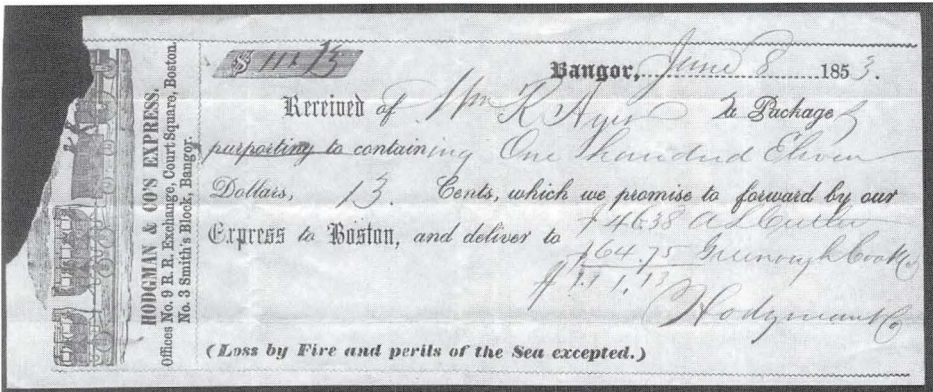 HODGMAN & CO'S EXPRESS.
Offices No. 9 R. R. Exchange, Court Square, Boston.
No. 3 Smith's Block, Bangor.
$ 111 13
Bangor, June 8 1853.
Received of Wm K Ayer 2 Package
purporting to containing One hundred Eleven
Dollars, 13. Cents, which we promise to forward by our
Express to Boston, and deliver to $46.38 A L Cutler
$64.75 Greenough Cook Co
$111.13
Hodgman & Co
(Loss by Fire and perils of the Sea excepted.)